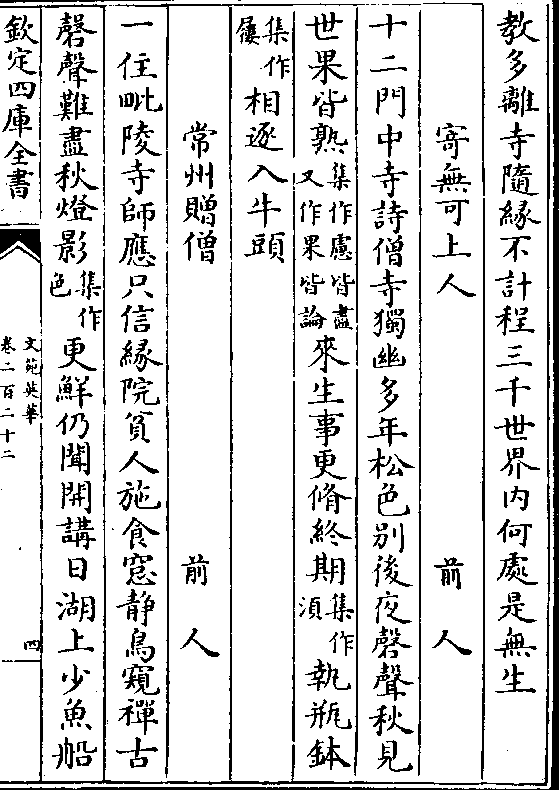 教多離寺隨緣不計程三千世界内何處是無生
寄無可上人 前人
十二門中寺詩僧寺獨幽多年松色别後夜磬聲秋見
世果皆熟集作慮皆盡又作果皆論來生事更脩終期集作湏執瓶鉢
集作屨相逐入牛頭
常州贈僧 前人
一住毗陵寺師應只信緣院貧人施食窻静鳥窺禪古
磬聲難盡秋燈影集作色更鮮仍聞開講日湖上少魚船
欽定四庫全書
文苑英華
卷二百二十二
四